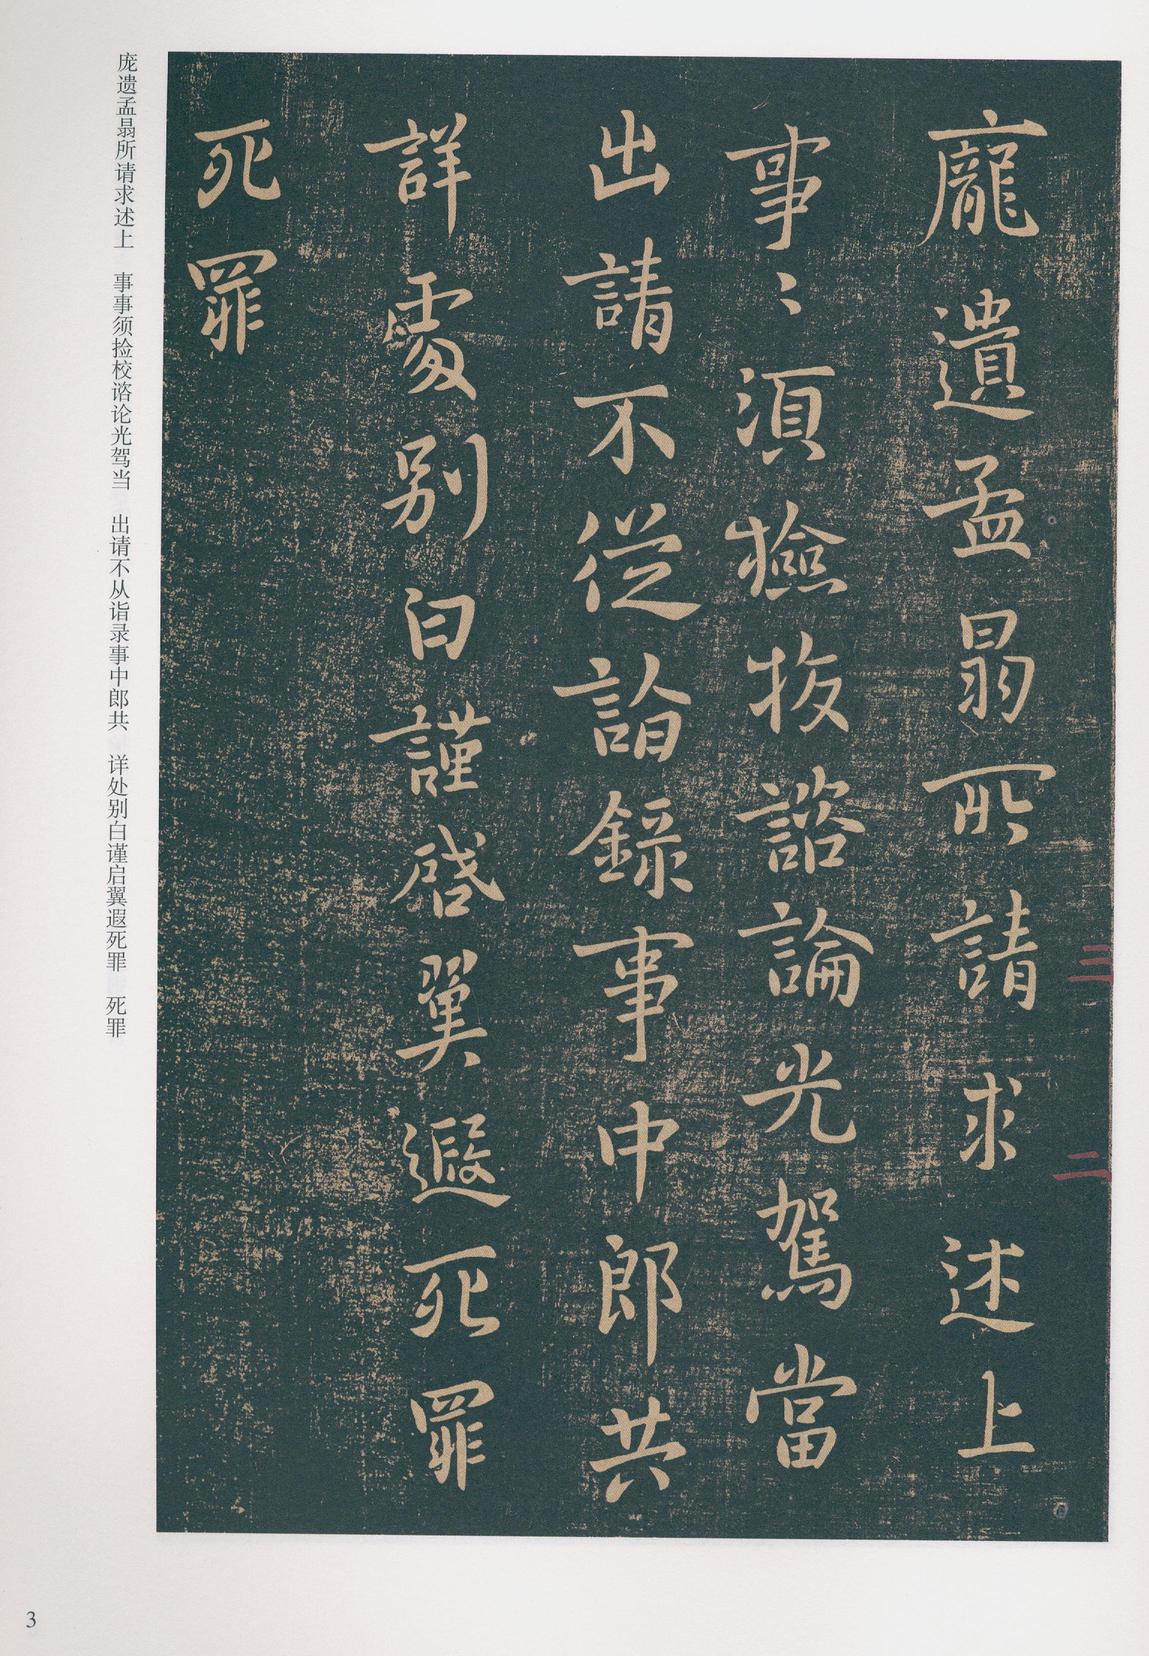 龐遺孟曷所請求述上
事〻須撿挍諮論光駕當
出請不從詣錄事中郎共
詳處別白謹啓翼遐死罪
死罪
三
二
庞遗孟曷所请求述上　事事须捡校谘论光驾当　出请不从诣录事中郎共　详处别白谨启翼遐死罪　死罪
3